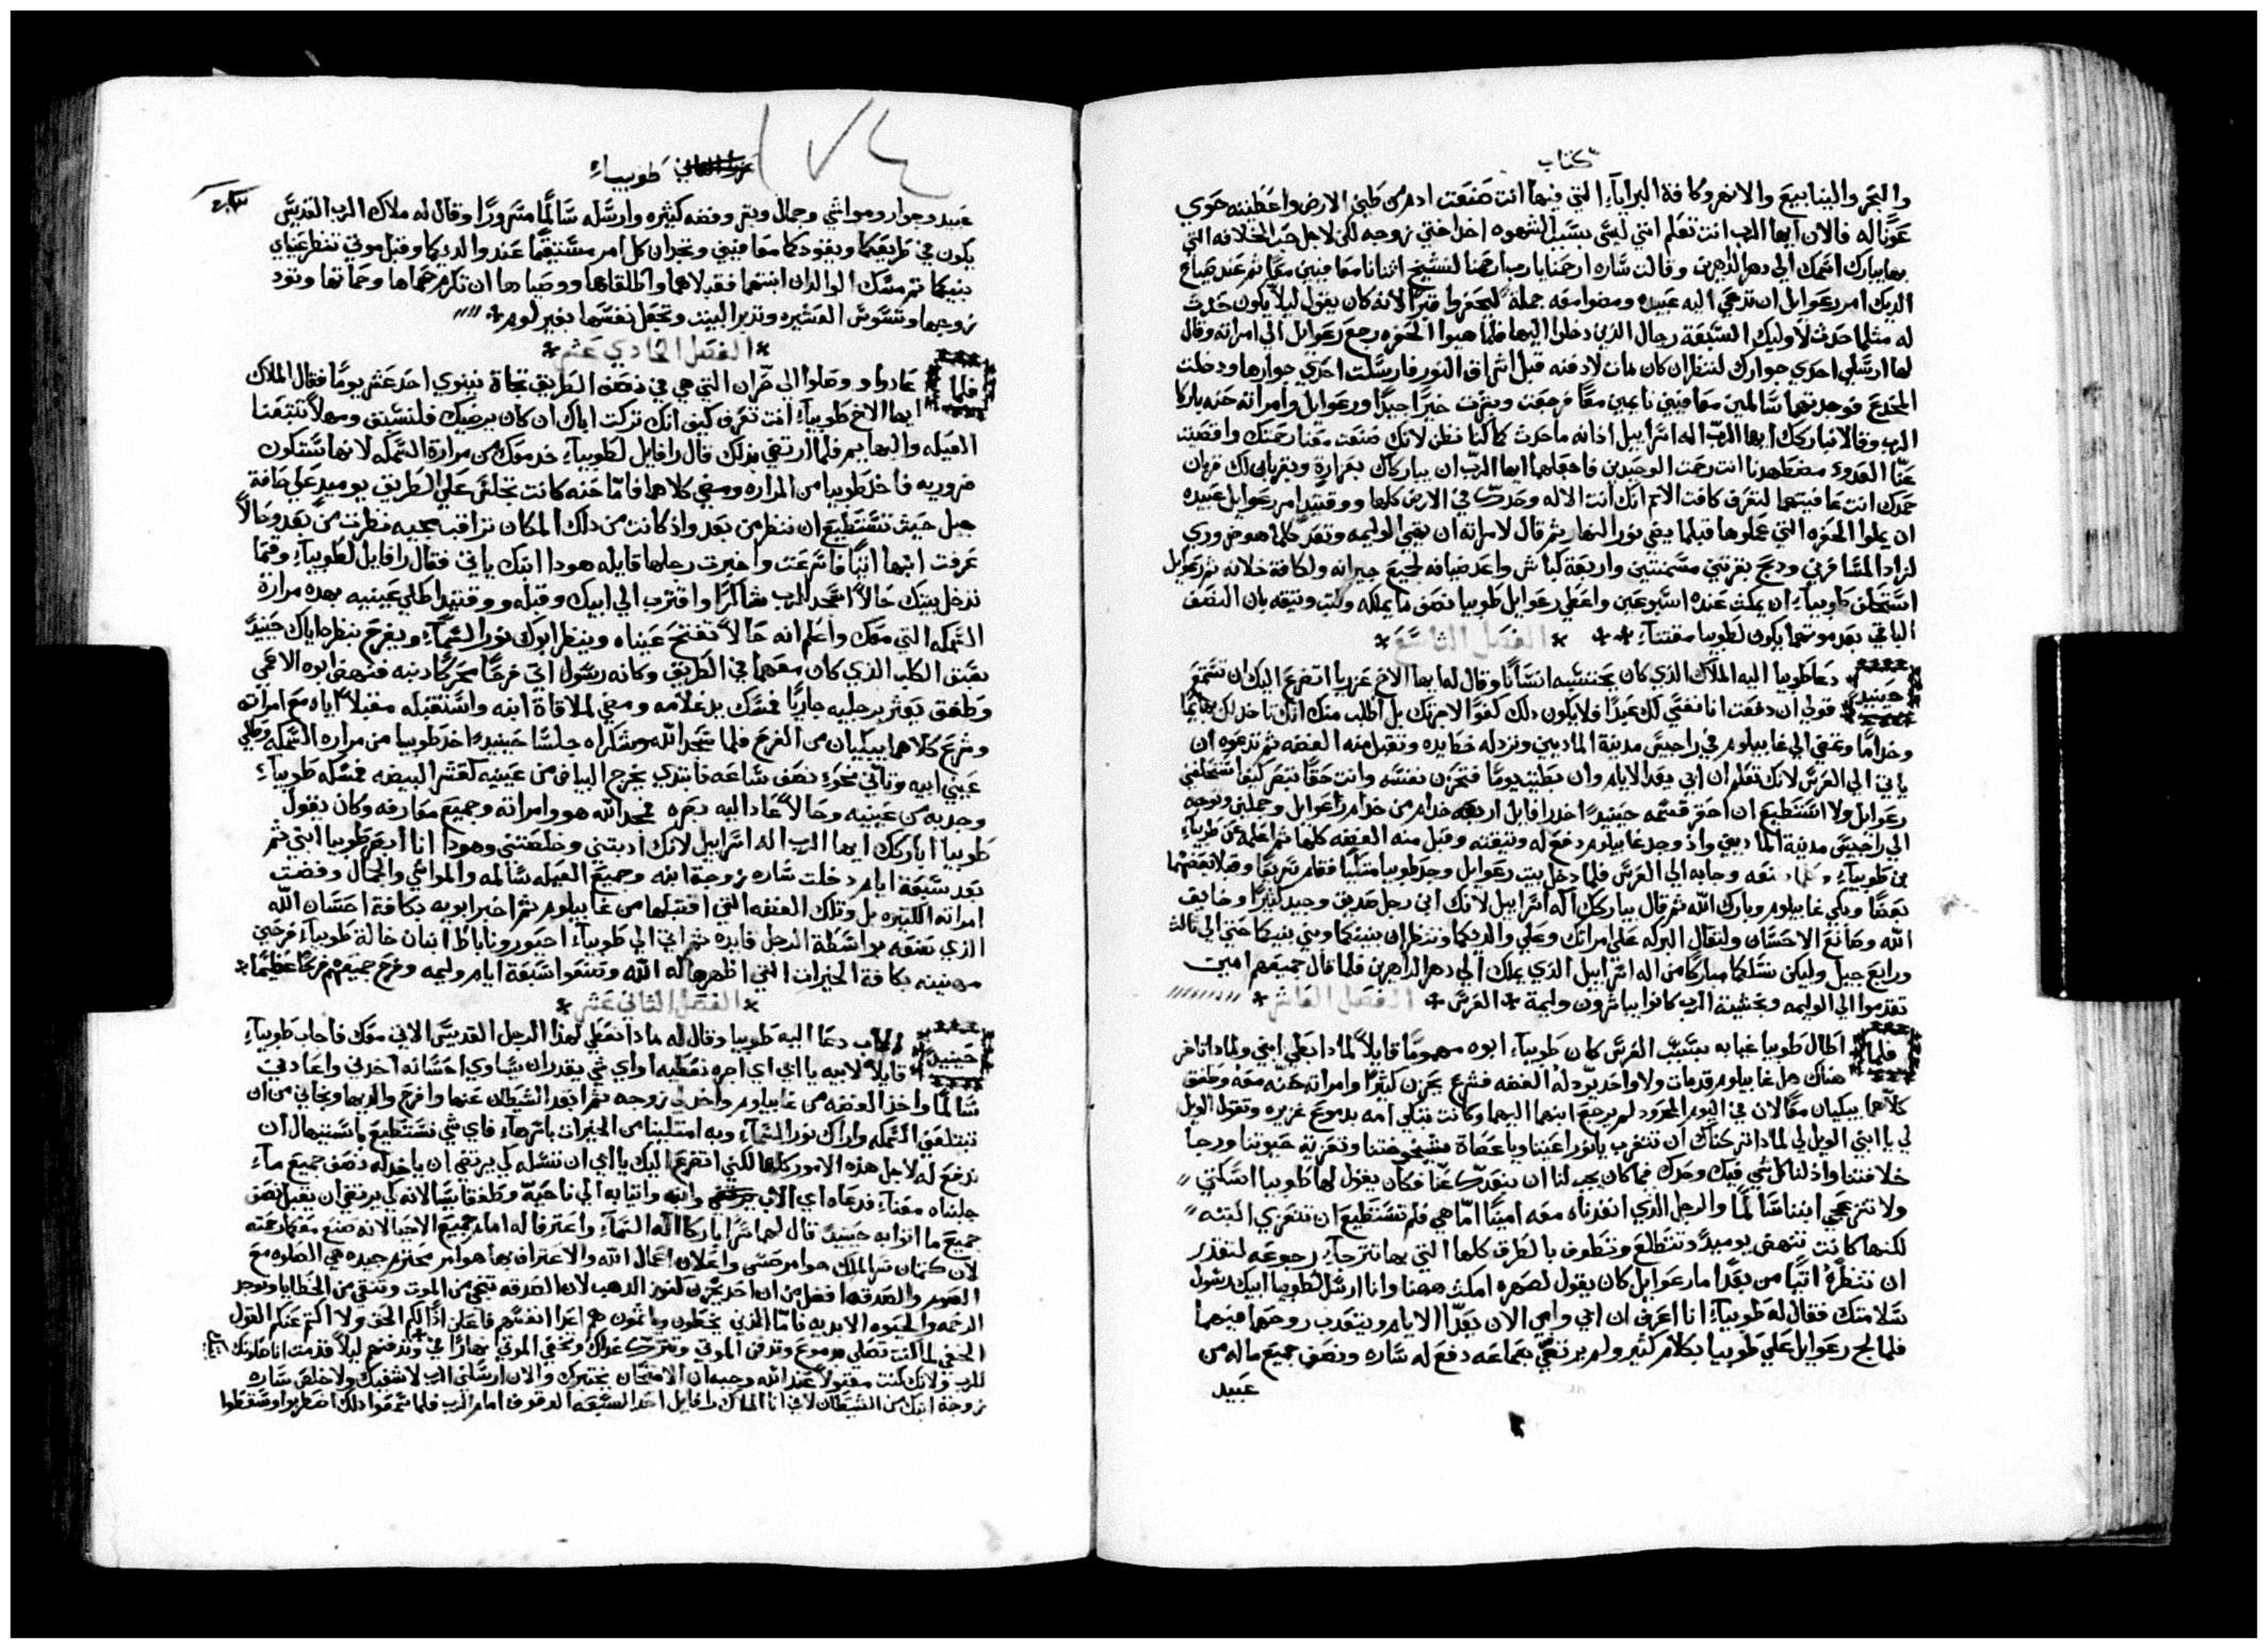 كتاب
والبحر والينابيع والانهر وكافة البرايا التي فيها انت صنعت ادم من طين الارض واعطيته حوي
عونا له فالان ايها الرب انت تعلم انني ليس بسبب الشهوه اخذ اختي زوجه لكن لاجل حب الخلافه التي
بها يبارك اسمك الي دهر الداهرين وقالت ساره ارحمنا يارب ارحمنا لنشيخ اثنانا معافيين معا ثم عند صياح
الديك امر رعوايل ان تدعي اليه عبيده ومضوا معه جملة ليحفروا قبرا لانه كان يقول ليلا يكون حدث
له مثلما حدث لاوليك السبعة رجال الذين دخلوا اليها فلما هيوا الحفره رجع رعوايل الي امراته وقال
لها ارسلي احدي جوارك لتنظر ان كان مات لادفنه قبل اشراق النور فارسلت احدي جوارها ودخلت
المخدع فوجدتهما سالمين معافيين نايمين معا فرجعت وبشرت خيرا جيدا ورعوايل وامراته حنه باركا
الرب وقالا نباركك ايها الرب اله اسراييل اذ انه ما حدث كما كنا نظن لانك صنعت معنا رحمتك واقصيت
عنا العدو مضطهدنا انت رحمت الوحيدين فاجعلهما ايها الرب ان يباركاك بغزارة ويقربا لك قربان
حمدك انت عافيتهما لتعرف كافت الامم انك انت الاله وحدك في الارض كلها ووقتيد امر رعوايل عبيده
ان يملوا الحفره التي عملوها قبلما يضي نور النهار ثم قال لامراته ان تهي الوليمه وتعد كلما هو ضروري
لزاد المسافرين ودبح بقرتين مسمنتين واربعة كباش واعد ضيافه لجميع جيرانه ولكافة خلانه ثم رعوايل
استحلف طوبيا ان يمكث عنده اسبوعين واعطي رعوايل طوبيا نصف ما يملكه وكتب وثيقه بان النصف
الباقي بعد موتهما يكون لطوبيا مقتناء * الفصل التاسع *
حينيد دعا طوبيا اليه الملاك الذي كان يحتسبه انسانا وقال له ايها الاخ عزريا اتضرع اليك ان تسمع
قولي ان دفعت انا نفسي لك عبدا فلا يكون دلك كفوا لاجرتك بل اطلب منك انك تاخد لك بهايما
وخداما وتمضي الي غابيلوم في راجيس مدينة الماديين وترد له خط يده وتقبل منه الفضه ثم تدعوه ان
ياتي الي العرس لانك تعلم ان ابي يعد الايام وان بطيت يوما فتحزن نفسه وانت حقا تبصر كيف استحلفني
رعوايل ولا استطيع ان احقر قسمه حينيد اخد رافايل اربعه خدام من خدام رعوايل وجملين وتوجه
الي راجيس مدينة الماديين واذ وجد غابيلوم دفع له وثيقته وقبل منه الفضه كلها ثم اعلمه عن طوبيا
بن طوبيا معه وجابه الي العرس فلما دخل بيت رعوايل وجد طوبيا متكيا فقام سريعا وقبلا بعضهما
بعضا وبكي غابيلوم وبارك الله ثم قال يباركك اله اسراييل لانك ابن رجل صديق وجيد كثيرا وخايف
الله وصانع الاحسان ولتقال البركه علي امراتك وعلي والديكما وتنظران بنيكما وبني بنيكما حتي الي ثالث
ورابع جيل وليكن نسلكما مباركا من اله اسراييل الذي يملك الي دهر الداهرين فلما قال جميعهم امين
تقدموا الي الوليمه وبخشية الرب كانوا يباشرون وليمة * العرس * الفصل العاشر *
فلما اطال طوبيا غيابه بسبب العرس كان طوبيا ابوه مهموما قايلا لمادا يبطي ابني ولمادا تاخر
هناك هل غابيلوم قد مات ولا واحد يرد له الفضه فشرع يحزن كثيرا وامراته حنه معه وطفق
كلاهما يبكيان معا لان في اليوم المحدود لم يرجع ابنهما اليهما وكانت تبكي امه بدموع غزيره وتقول الويل
لي يا ابني الويل لي لمادا تركناك ان تتغرب يا نور اعيننا ويا عصاة شيخوختنا وتعزية حيوتنا ورجا
خلافتنا واذ لنا كل شي فيك وحدك فما كان يجب لنا ان نبعدك عنا فكان يقول لها طوبيا اسكتي
ولا تنزعجي ابننا سالما والرجل الذي انفدناه معه امينا اما هي فلم تستطيع ان تتعزي البته
لكنها كانت تنهض يوميد وتتطلع وتطوف بالطرق كلها التي بها تترجاء رجوعه لتقدر
ان تنظره اتيا من بعد اما رعوايل كان يقول لصهره امكث ههنا وانا ارسل لطوبيا ابيك رسول
سلامتك فقال له طوبيا انا اعرف ان ابي وامي الان يعدا الايام ويتعدب روحهما فيهما
فلما لج رعوايل علي طوبيا بكلام كثير ولم يرتضي بجماعه دفع له ساره ونصف جميع ماله من
عبيد
١٧٤
طوبيا
عبيد وجوار ومواشي وجمال وبقر وفضه كثيره وارسله سالما مسرورا وقال له ملاك الرب القديس
يكون في طريقكما ويقودكما معافيين وتجدان كل امر مستقيما عند والديكما وقبل موتي تنظر عيناي
بنيكما ثم مسك الوالدان ابنتهما فقبلاهما واطلقاها ووصياها ان تكرم حماها وحماتها وتود
زوجها وتسوس العشيره وتدبر البيت وتجعل نفسها بغير لوم *
* الفصل الحادي عشر *
فلما عادوا ووصلوا الي حران التي هي في نصف الطريق تجاة نينوي احد عشر يوما فقال الملاك
ايها الاخ طوبيا انت تعرف كيف انك تركت اباك ان كان يرضيك فلنسبق ومهلا تتبعنا
العيله والبهايم فلما ارتضي بدلك قال رافايل لطوبيا خد معك من مرارة السمكه لانها ستكون
ضروريه فاخد طوبيا من المراره ومضي كلاهما فاما حنه كانت تجلس علي الطريق يوميد علي حافة
جبل حيث تستطيع ان تنظر من بعد واذ كانت من دلك المكان تراقب مجيه نظرت من بعد وحالا
عرفت ابنها اتيا فاسرعت واخبرت رجلها قايله هودا ابنك ياتي فقال رافايل لطوبيا وقتما
تدخل بيتك حالا اسجد للرب شاكرا واقترب الي ابيك وقبله ووقتيد اطلي عينيه بهده مرارة
السمكه التي معك واعلم انه حالا تفتح عيناه وينظر ابوك نور السماء ويفرح بنظره اياك حينيد
سبق الكلب الذي كان معهما في الطريق وكانه رسول اتي فرحا محركا دنبه فنهض ابوه الاعمي
وطفق يعثر برجليه جاريا فمسك يد غلامه ومضي لملاقاة ابنه واستقبله مقبلا اياه مع امراته
وشرع كلاهما يبكيان من الفرح فلما سجد الله وشكراه جلسا حينيد اخد طوبيا من مراره السمكه وطلي
عيني ابيه وتاني نحو نصف ساعه فابتدي يخرج البياض من عينيه كقشر البيضه فمسكه طوبيا
وجدبه من عينيه وحالا عاد اليه بصره فمجد الله هو وامراته وجميع معارفه وكان يقول
طوبيا اباركك ايها الرب اله اسراييل لانك ادبتني وخلصتني وهودا انا ابصر طوبيا ابني ثم
بعد سبعة ايام دخلت ساره زوجة ابنه وجميع العيله سالمه والمواشي والجمال وفضت
امراته الكثيره بل وتلك الفضه التي اقتبلها من غابيلوم ثم اخبر ابويه بكافة احسان الله
الذي صنعه بواسطة الرجل قايده ثم اتي الي طوبيا احيور وناباط ابنان خالة طوبيا فرحين
مهنينه بكافة الخيرات التي اظهرها له الله وتنعموا سبعة ايام وليمه وفرح جميعهم فرحا عظيما *
* الفصل الثاني عشر *
حينيد الاب دعا اليه طوبيا وقال له مادا نعطي لهدا الرجل القديس الاتي معك فاجاب طوبيا
قايلا لابيه يا ابي اي اجره نعطيه او اي شي يقدر ان يساوي احسانه اخدني واعادني
سالما واخذ الفضه من غابيلوم واخد لي زوجه ثم ابعد الشيطان عنها وافرح والديها ونجاني من ان
تبتلعني السمكه واراك نور السماء وبه امتلينا من الخيرات باسرها فاي شي نستطيع ما ستيهال ان
ندفع له لاجل هذه الامور كلها لكني اتضرع اليك يا ابي ان تسله لي يرتضي ان ياخد له نصف جميع ماء
جلبناه معنا فدعاه اي الاب وابنه واتيا به الي ناحية وطفقا يسالانه لكي يرتضي ان يقبل نصف
جميع ما اتوا به حينيد قال لهما سرا باركا اله السماء واعترفا له امام جميع الاحيا لانه صنع معكما رحمته
لان كتمان سر الملك هو امر حسن واعلان اعمال الله والاعتراف بها هو امر محترم جيده هي الصلوه مع
الصوم والصدقه افضل من ان احد يخزن كنوز الدهب لان الصدقه تنجي من الموت وتنقي من الخطايا وتوجد
الرحمه والحيوه الابديه فاما الذين يخطون وياثمون هم اعدا انفسهم فاعلن اذا لكم الحق ولا اكتم عنكم القول
الخفي لما كنت تصلي بدموع وتدفن الموتي وتترك غداك وتخفي الموتي نهارا في وتدفنهم ليلا قدمت انا صلوتك
للرب ولانك كنت مقبولا عند الله وجب ان الامتحان يختبرك والان ارسلني الرب لاشفيك ولاخلص ساره
زوجة ابنك من الشيطان لاني انا الملاك رافايل احد السبعه الوقوف امام الرب فلما سمعوا دلك اضطربوا وسقطوا